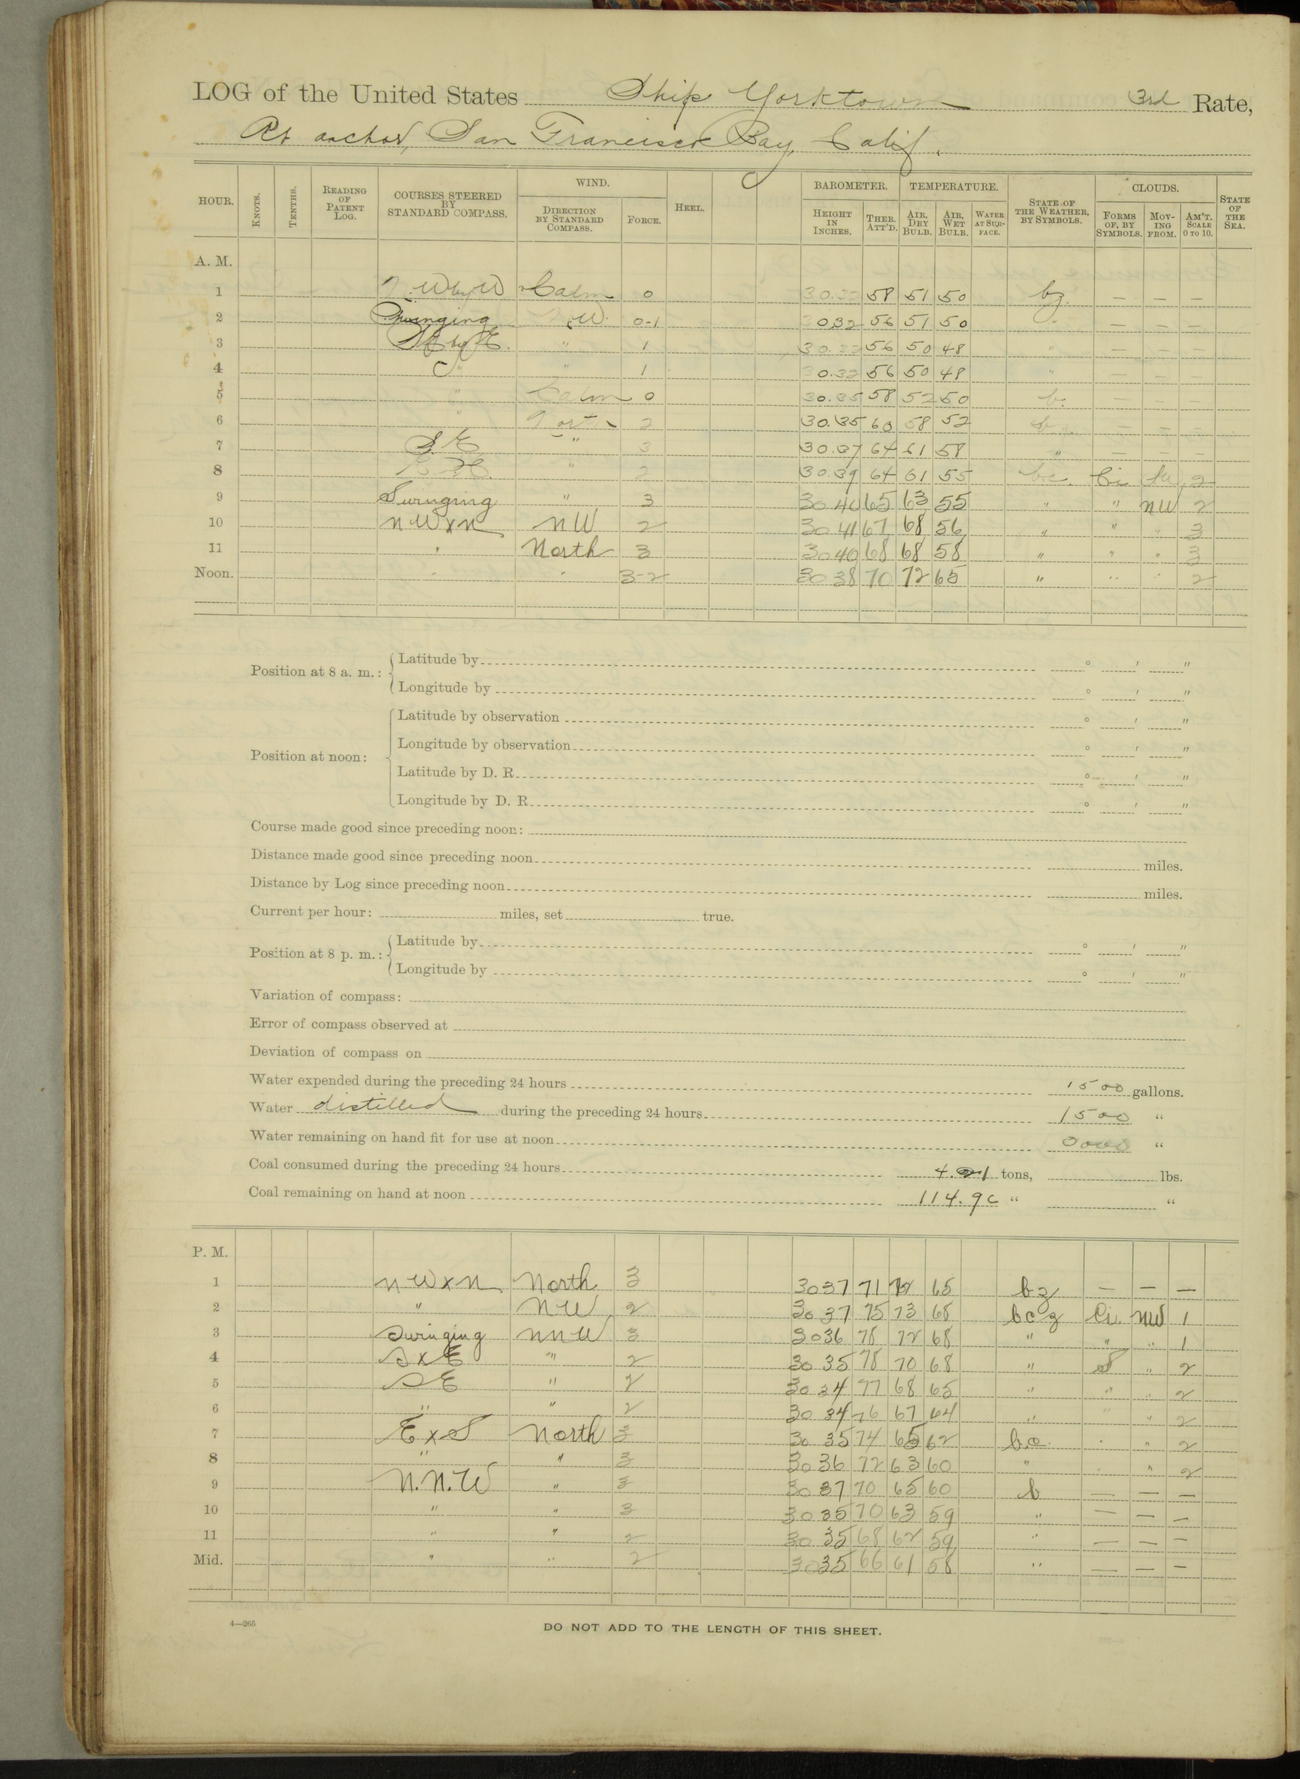 LOG of the United States Ship Yorktown 3rd Rate,
At anchor, San Francisco Bay, Calif.
HOUR. KNOTS. TENTHS. READING OF PATENT LOG. COURSES STEERED BY STANDARD COMPASS. WIND. DIRECTION BY STANDARD COMPASS. FORCE. HEEL. BAROMETER. HEIGHT IN INCHES. THER. ATT'D. TEMPERATURE. AIR, DRY BULB. AIR, WET BULB. WATER AT SURFACE. STATE OF THE WEATHER, BY SYMBOLS. CLOUDS. FORMS OF, BY SYMBOLS. MOVING FROM. AM'T. SCALE 0 TO 10. STATE OF THE SEA.
A. M.
1 Calm 0 58 51 50 bz. — — —
2 Swinging 0-1 56 51 50 — — —
3 " 1 56 50 48 " — — —
4 " 1 30.32 56 50 48 " — — —
5 " Calm 0 30.35 58 52 50 b. — — —
6 North 2 30.35 60 58 52 — — —
7 S.E " 3 30.37 64 61 58 " — — —
8 " 2 30.39 64 61 55 bc. Ci 2
9 Swinging " 3 30 40 65 63 55 " " NW 2
10 NWxN NW 2 30 41 67 68 56 " " " 3
11 " North 3 30 40 68 68 58 " " " 3
Noon. " " 3-2 30 38 70 72 65 " " " 2
Position at 8 a. m.: Latitude by ° ' "
Longitude by ° ' "
Position at noon: Latitude by observation ° ' "
Longitude by observation ° ' "
Latitude by D. R. ° ' "
Longitude by D. R. ° ' "
Course made good since preceding noon:
Distance made good since preceding noon miles.
Distance by Log since preceding noon miles.
Current per hour: miles, set true.
Position at 8 p. m.: Latitude by ° ' "
Longitude by ° ' "
Variation of compass:
Error of compass observed at
Deviation of compass on
Water expended during the preceding 24 hours 1500 gallons.
Water distilled during the preceding 24 hours 1500 "
Water remaining on hand fit for use at noon "
Coal consumed during the preceding 24 hours 4.21 tons, lbs.
Coal remaining on hand at noon "  "
P. M.
1 NWxN North 3 30 37 71 72 65 bz — — —
2 " NW 2 30 37 75 73 68 bcz Ci NW 1
3 Swinging NNW 3 30 36 78 72 68 " " " 1
4 SxE " 2 30 35 78 70 68 " S " 2
5 SE " 2 30 34 77 68 65 " " " 2
6 " " 2 30 34 76 67 64 " " " 2
7 ExS North 3 30 35 74 65 62 bc " " 2
8 " " 3 30 36 72 63 60 " " " 2
9 N.N.W " 3 30 37 70 65 60 b — — —
10 " " 3 30 35 70 63 59 " — — —
11 " " 2 30 35 68 62 59 " — — —
Mid. " " 2 30 35 66 61 58 " — — —
4—265
DO NOT ADD TO THE LENGTH OF THIS SHEET.